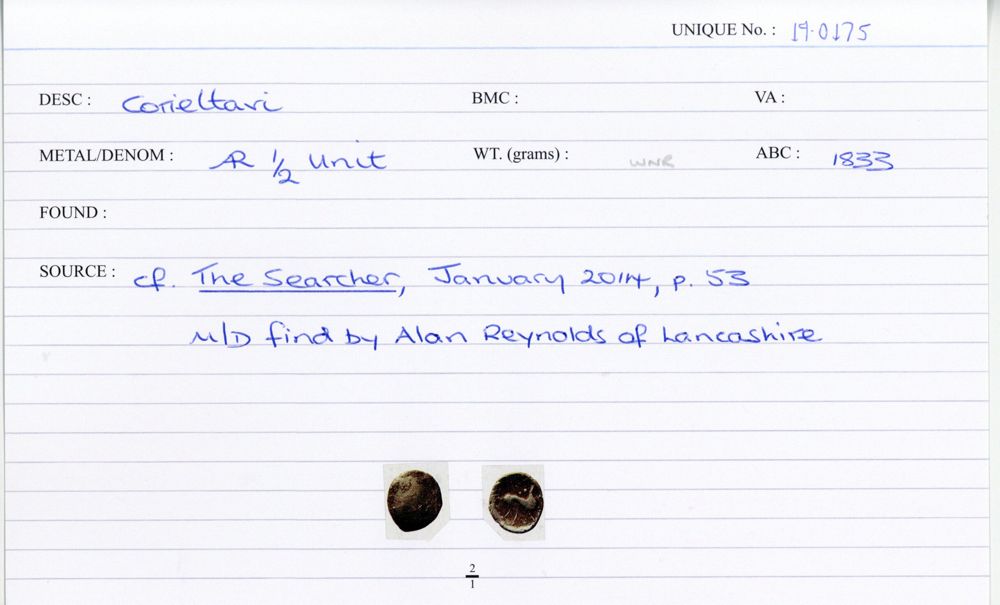 UNIQUE No. : 19.0175
DESC : Corieltavi BMC : VA :
METAL/DENOM : AR 1/2 Unit WT. (grams) : WNR ABC : 1833
FOUND :
SOURCE : cf. The Searcher, January 2014, p. 53
M/D find by Alan Reynolds of Lancashire
2
1